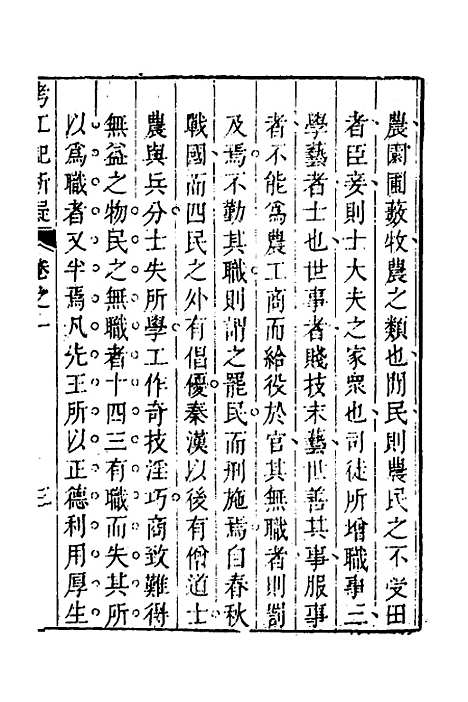 農園圃藪牧農之類也閒民則農民之不受田
者臣妾則士大夫之家衆也司徒所增職事二
學藝者士也世事者賤技末藝世善其事服事
者不能爲農工商而給役於官其無職者則罰
及焉不勤其職則謂之罷民而刑施焉自春秋
戰國而四民之外有倡優秦漢以後有僧道士
農與兵分士失所學工作奇技淫巧商致難得
無益之物民之無職者十四三有職而失其所
以爲職者又半焉凡先王所以正德利用厚生
考工記析疑 卷之一 三